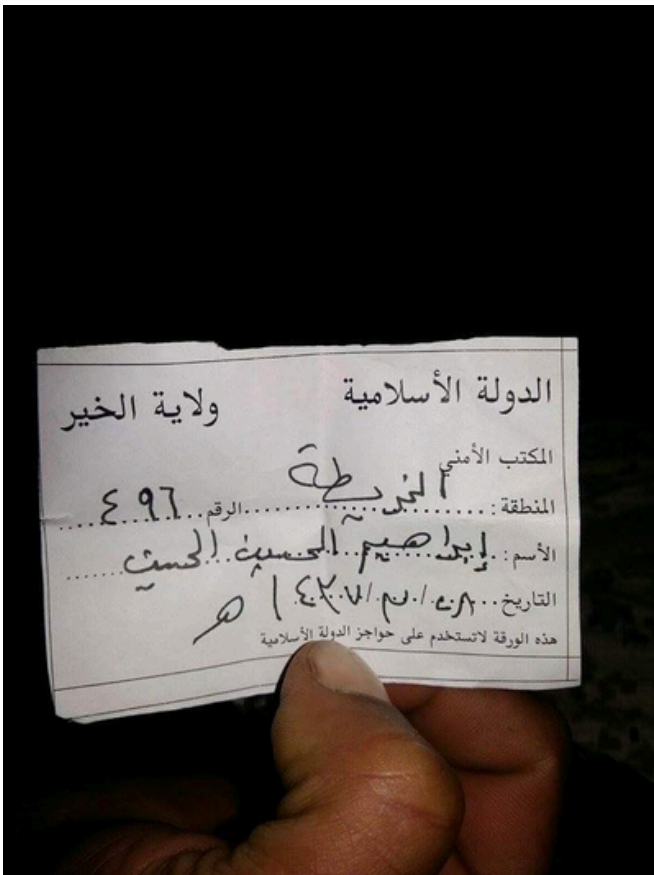 الدولة الأسلامية ولاية الخير
المكتب الأمني
المنطقة: الخريطة الرقم ٤٩٦
الأسم: إبراهيم الحسين الحسين
التاريخ
هذه الورقة لاتستخدم على حواجز الدولة الأسلامية